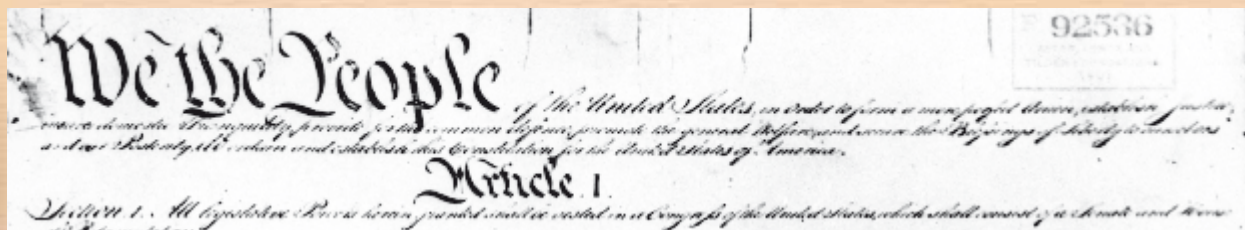 92536
We the People of the United States, in Order to form a more perfect Union, establish Justice,
insure domestic Tranquility, provide for the common defence, promote the general Welfare, and secure the Blessings of Liberty to ourselves
and our Posterity, do ordain and establish this Constitution for the United States of America.
Article. I.
Section. 1. All legislative Powers herein granted shall be vested in a Congress of the United States, which shall consist of a Senate and House